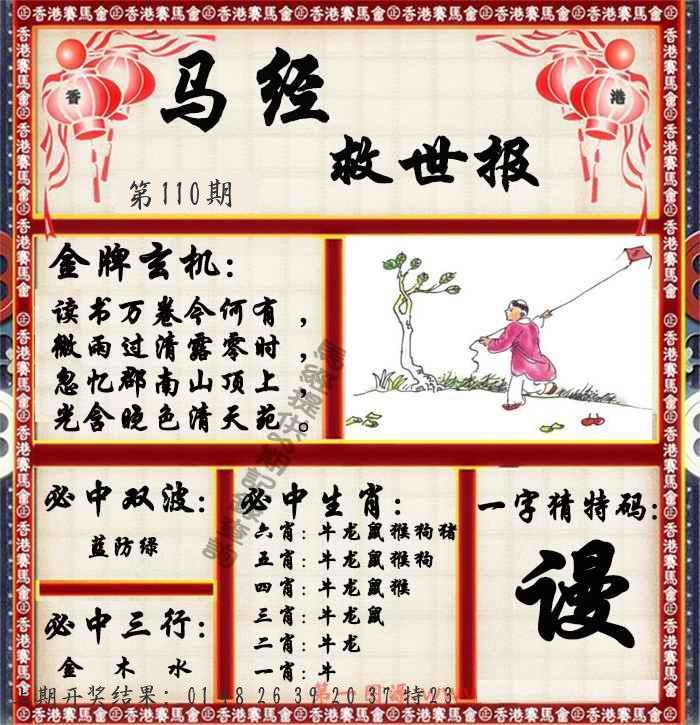 香港賽馬會㊣香港賽馬會㊣香港賽馬會㊣香港賽馬會㊣香港賽馬會
香
港
马经
救世报
第110期
金牌玄机:
读书万卷今何有,
微雨过清露零时,
忽忆郡南山顶上,
光含晚色清天苑。
必中双波:
蓝防绿
必中三行:
金 木 水
必中生肖:
六肖:牛龙鼠猴狗猪
五肖:牛龙鼠猴狗
四肖:牛龙鼠猴
三肖:牛龙鼠
二肖:牛龙
一肖:牛
一字猜特码:
谩
期开奖结果: 01 48 26 39 20 37 特23